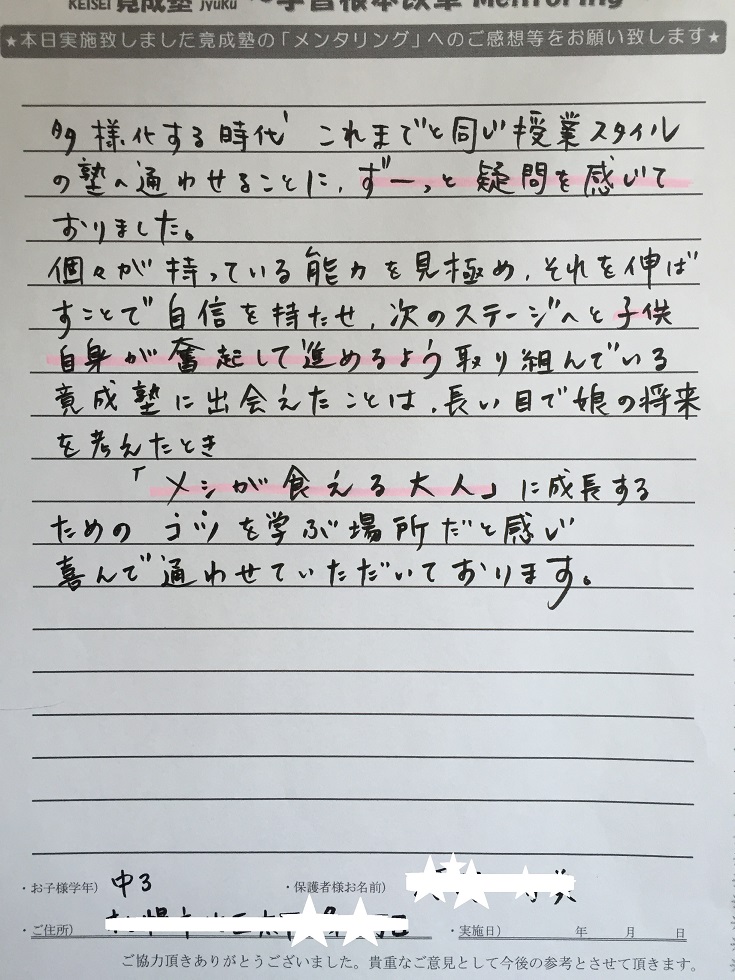 KEISEI 竟成塾 jyuku ～学習根本改革 Mentoring～
★本日実施致しました竟成塾の「メンタリング」へのご感想等をお願い致します★
多様化する時代 これまでと同じ授業スタイル
の塾へ通わせることに、ずーっと疑問を感じて
おりました。
個々が持っている能力を見極め、それを伸ば
すことで自信を持たせ、次のステージへと子供
自身が奮起して進めるよう取り組んでいる
竟成塾に出会えたことは、長い目で娘の将来
を考えたとき
「メシが食える大人」に成長する
ための コツを学ぶ場所だと感じ
喜んで通わせていただいております。
・お子様学年) 中3 ・保護者様お名前)
・ご住所) ・実施日) 年 月 日
ご協力頂きありがとうございました。貴重なご意見として今後の参考とさせて頂きます。